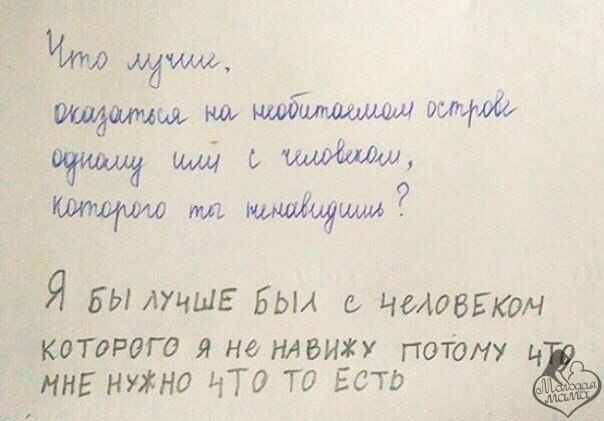 Что лучше,
оказаться на необитаемом острове
одному или с человеком,
которого ты ненавидишь?
Я БЫ ЛУЧШЕ БЫЛ С ЧЕЛОВЕКОМ
КОТОРОГО Я НЕ НАВИЖУ ПОТОМУ ЧТО
МНЕ НУЖНО ЧТО ТО ЕСТЬ
Молодая
мама